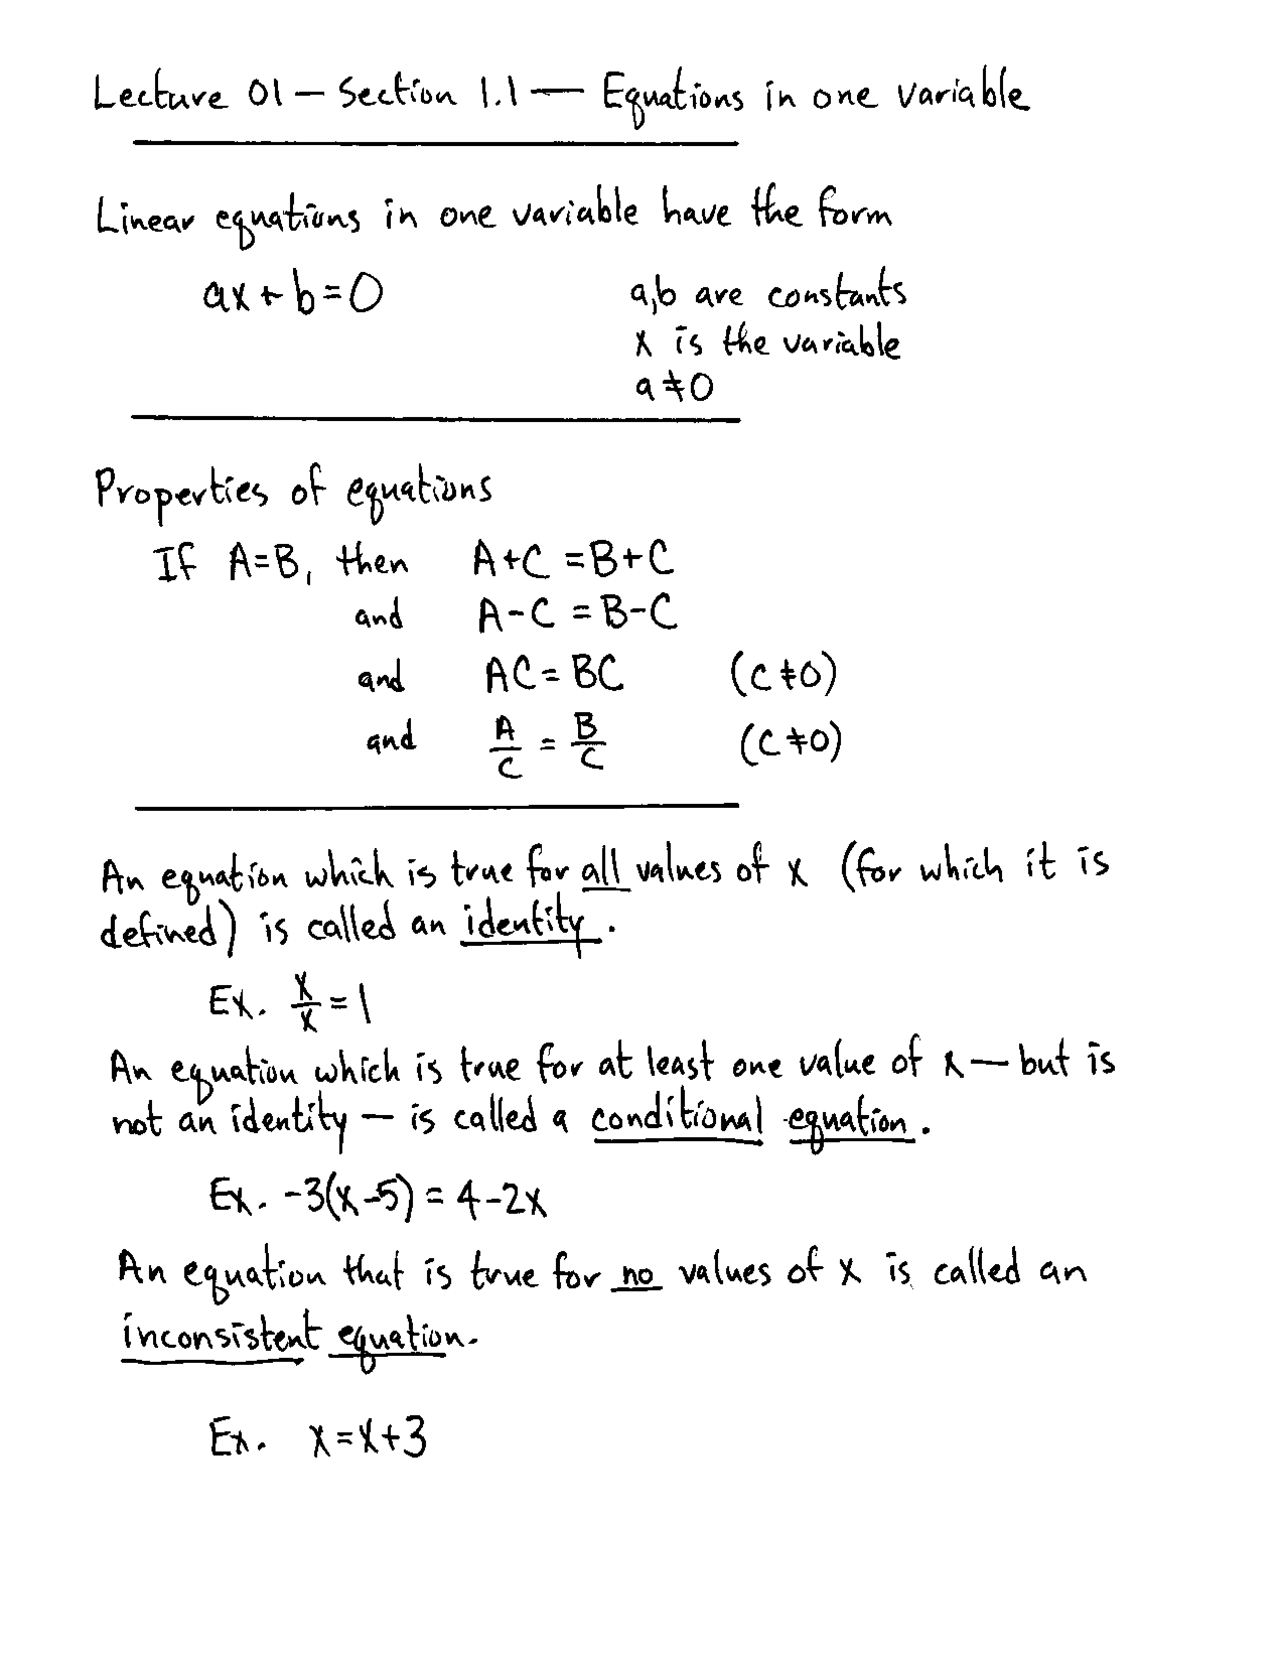 Lecture 01 — Section 1.1 — Equations in one variable
Linear equations in one variable have the form
ax + b = 0 a,b are constants
x is the variable
a ≠ 0
Properties of equations
If A=B, then A+C = B+C
and A-C = B-C
and AC = BC (C≠0)
and A/C = B/C (C≠0)
An equation which is true for all values of x (for which it is
defined) is called an identity.
Ex. x/x = 1
An equation which is true for at least one value of x — but is
not an identity — is called a conditional equation.
Ex. -3(x-5) = 4-2x
An equation that is true for no values of x is called an
inconsistent equation.
Ex. x = x+3